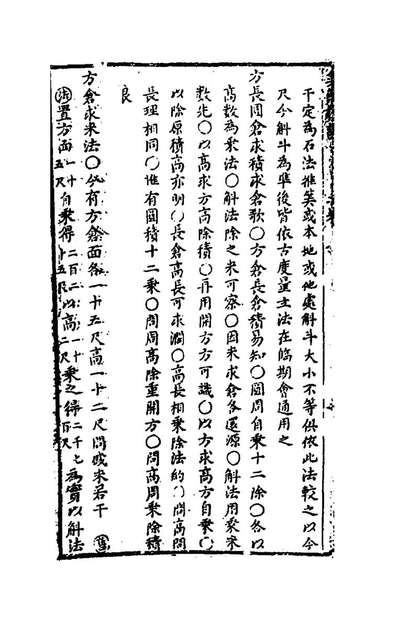 千定為石法推筭或本地或他處斛斗大小不等俱依此法較之以今
尺今斛斗為準後皆依古度量立法在臨期會通用之
方長圓倉求積求倉歌〇方倉長倉積易知〇圓周自乘十二除〇各以
高數為乘法〇斛法除之米可察〇因米求倉各還源〇斛法用乘米
數先〇以高求方高除積〇再用開方方可識〇以方求高方自乘〇
以除原積高亦明〇長倉高長可求濶〇高長相乘除法約〇問高問
長理相同〇惟有圓積十二乘〇問周高除重開方〇問高周乘除積
良
方倉求米法〇今有方倉面各一十五尺高一十二尺問成米若干 答
法置方面一十五尺自乘得二百二十五尺以高一十二尺乘之得二千七百尺為實以斛法